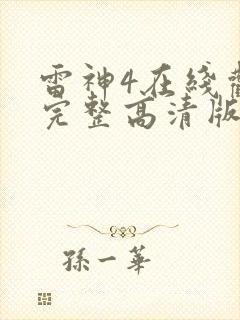 雷神4在线
完整高清版
孫一華